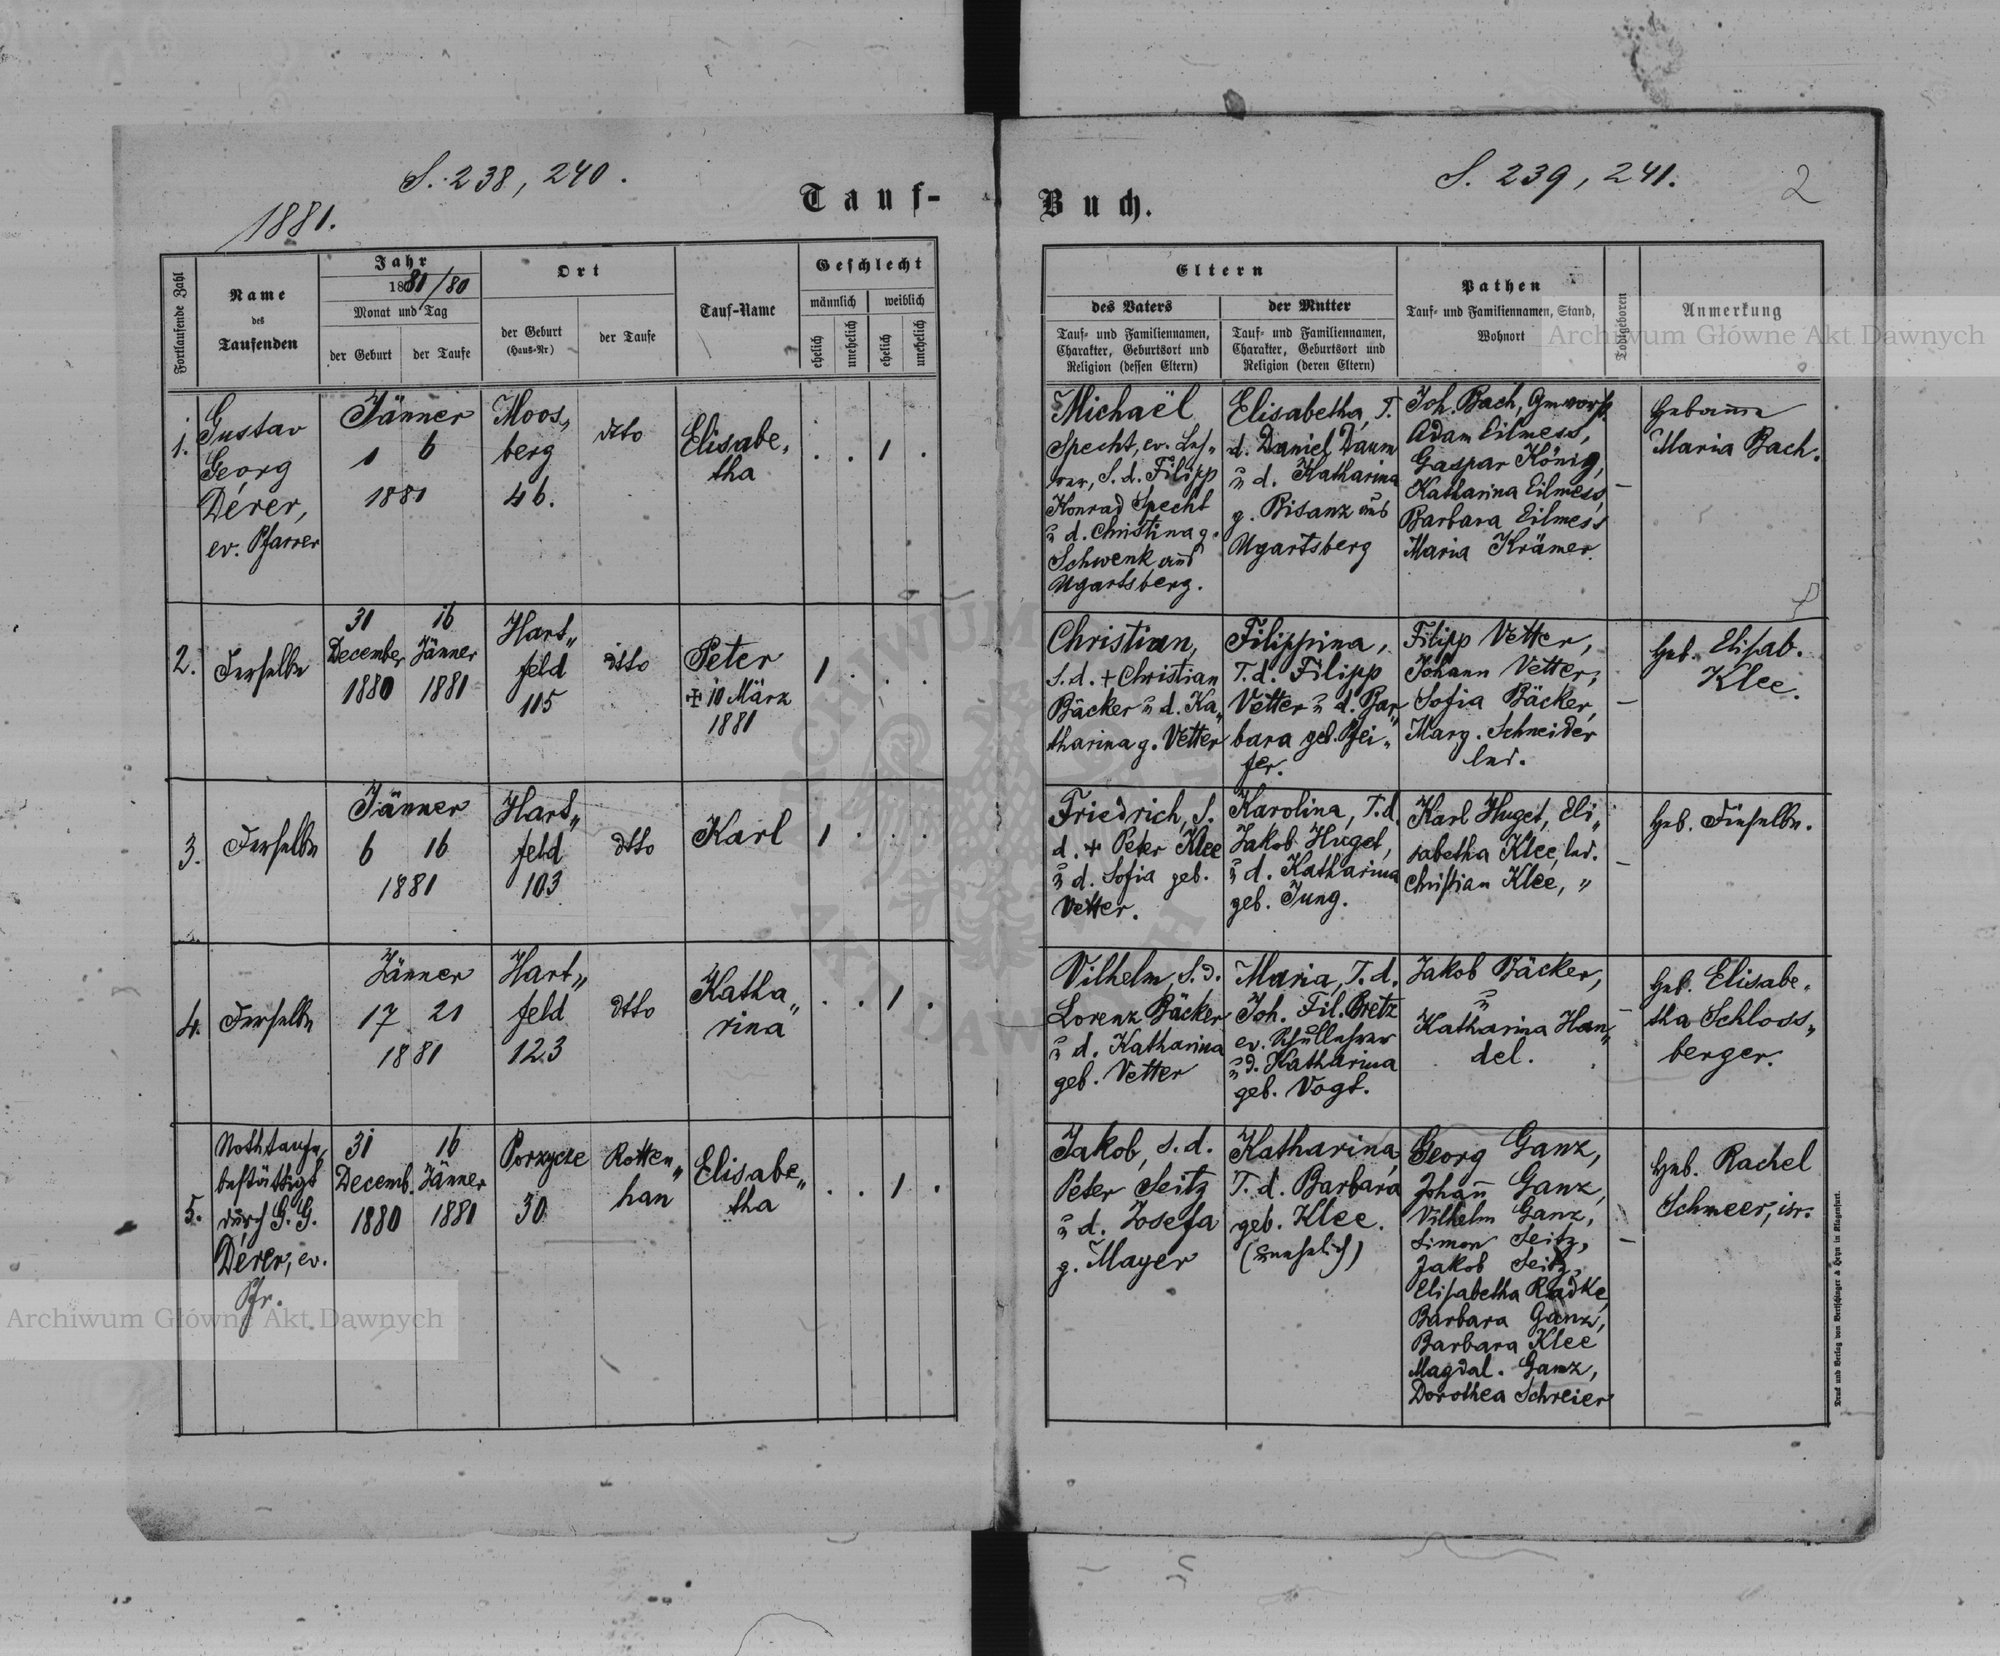 S. 238, 240.
1881.
Tauf-
Fortlaufende Zahl
Name
des
Taufenden
Jahr
1881/80
Monat und Tag
der Geburt
der Taufe
Ort
der Geburt
(Haus-Nr)
der Taufe
Tauf-Name
Geschlecht
männlich
weiblich
ehelich
unehelich
ehelich
unehelich
1.
Gustav
Georg
Dérer,
ev. Pfarrer
Jänner
1 6
1881
Moos„
berg
46.
dtto
Elisabe„
tha
. . 1 .
2.
Derselbe
31 16
December Jänner
1880 1881
Hart„
feld
115
dtto
Peter
+ 10 März
1881
1 . . .
3.
Derselbe
Jänner
6 16
1881
Hart„
feld
103
dtto
Karl
1 . . .
4.
Derselbe
Jänner
17 21
1881
Hart„
feld
123
dtto
Katha„
rina
. . 1 .
5.
Nothtaufe,
bestättigt
durch G. G.
Dérer, ev.
Pfr.
31 16
Decemb. Jänner
1880 1881
Porzycze
30
Rotten„
han
Elisabe„
tha
. . 1 .
S. 239, 241.
2
Buch.
Eltern
des Vaters
Tauf- und Familiennamen,
Charakter, Geburtsort und
Religion (dessen Eltern)
der Mutter
Tauf- und Familiennamen,
Charakter, Geburtsort und
Religion (deren Eltern)
Pathen
Tauf- und Familiennamen, Stand,
Wohnort
Todtgeboren
Anmerkung
Michaël
Specht, ev. Leh„
rer, S. d. Filipp
Konrad Specht
u d. Christina g.
Schwenk aus
Ugartsberg.
Elisabetha, T.
d. Daniel Daum
u d. Katharina
g. Bisanz aus
Ugartsberg
Joh. Bach, Gmvorst.
Adam Eilmess,
Gaspar König,
Katharina Eilmess,
Barbara Eilmess
Maria Krämer.
–
Hebamme
Maria Bach.
Christian,
S. d. + Christian
Bäcker u d. Ka„
tharina g. Vetter
Filippina,
T. d. Filipp
Vetter u d. Bar„
bara geb. Pfei„
fer.
Filipp Vetter,
Johann Vetter,
Sofia Bäcker,
Marg. Schneider
led.
–
Heb. Elisab.
Klee.
Friedrich, S.
d. + Peter Klee
u d. Sofia geb.
Vetter.
Karolina, T. d.
Jakob Huget,
u d. Katharina
geb. Jung.
Karl Huget, Eli„
sabetha Klee, led.
Christian Klee, „
–
Heb. Dieselbe.
Vilhelm, S. d.
Lorenz Bäcker
u d. Katharina
geb. Vetter
Maria, T. d.
Joh. Fil. Bretz
ev. Schullehrer
u d. Katharina
geb. Vogt.
Jakob Bäcker,
u
Katharina Han„
del.
–
Heb. Elisabe„
tha Schloss„
berger.
Jakob, S. d.
Peter Seitz
u d. Josefa
g. Mayer
Katharina,
T. d. Barbara
geb. Klee.
(unehelich)
Georg Ganz,
Johann Ganz,
Vilhelm Ganz,
Simon Seitz,
Jakob Seitz,
Elisabetha Radke,
Barbara Ganz,
Barbara Klee
Magdal. Ganz,
Dorothea Schreier
–
Heb. Rachel
Schmeer, isr.
Druck und Verlag von Bertschinger & Heyn in Klagenfurt.
Archiwum Główne Akt Dawnych
Archiwum Główne Akt Dawnych